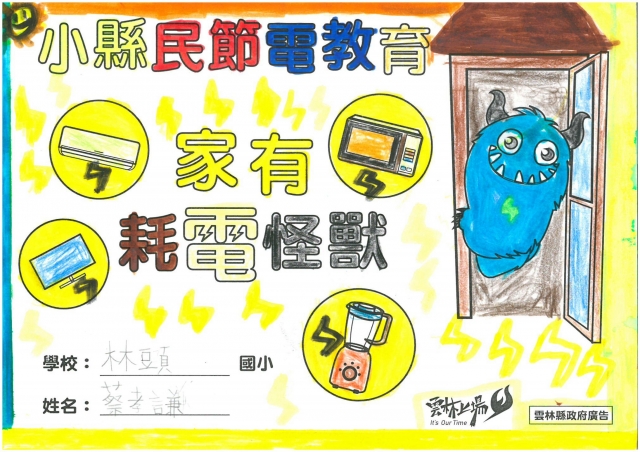 小縣民節電教育
家有
耗電怪獸
學校：林頭國小
姓名：蔡孝謙
雲林上場
It's Our Time
雲林縣政府廣告